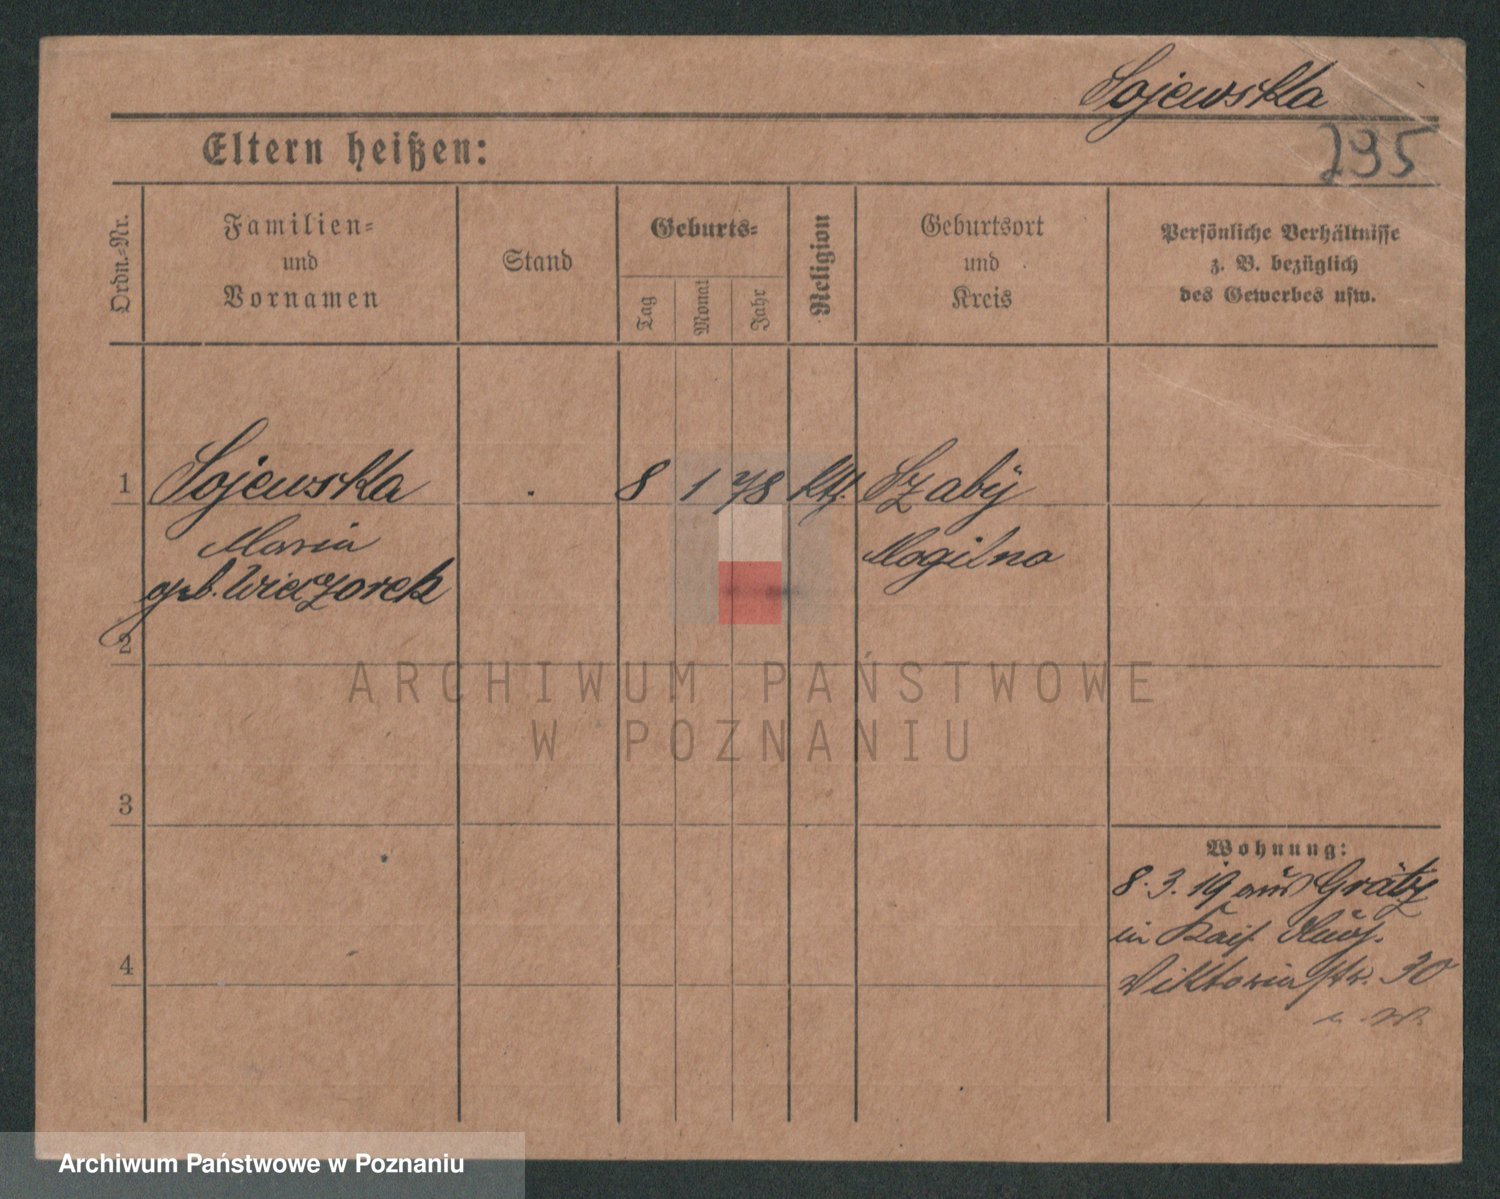 Sojewska
Eltern heißen:
295
Ordn.-Nr.
Familien-
und
Vornamen
Stand
Geburts-
Tag
Monat
Jahr
Religion
Geburtsort
und
Kreis
Persönliche Verhältnisse
z. B. bezüglich
des Gewerbes usw.
1
Sojewska
8 1 78 kth. Szaby
Maria
Mogilno
geb. Wieczorek
2
ARCHIWUM PAŃSTWOWE
W POZNANIU
3
Wohnung:
8.3.19 aus Grätz
in Kais.
4
Viktoria str. 30
Archiwum Państwowe w Poznaniu